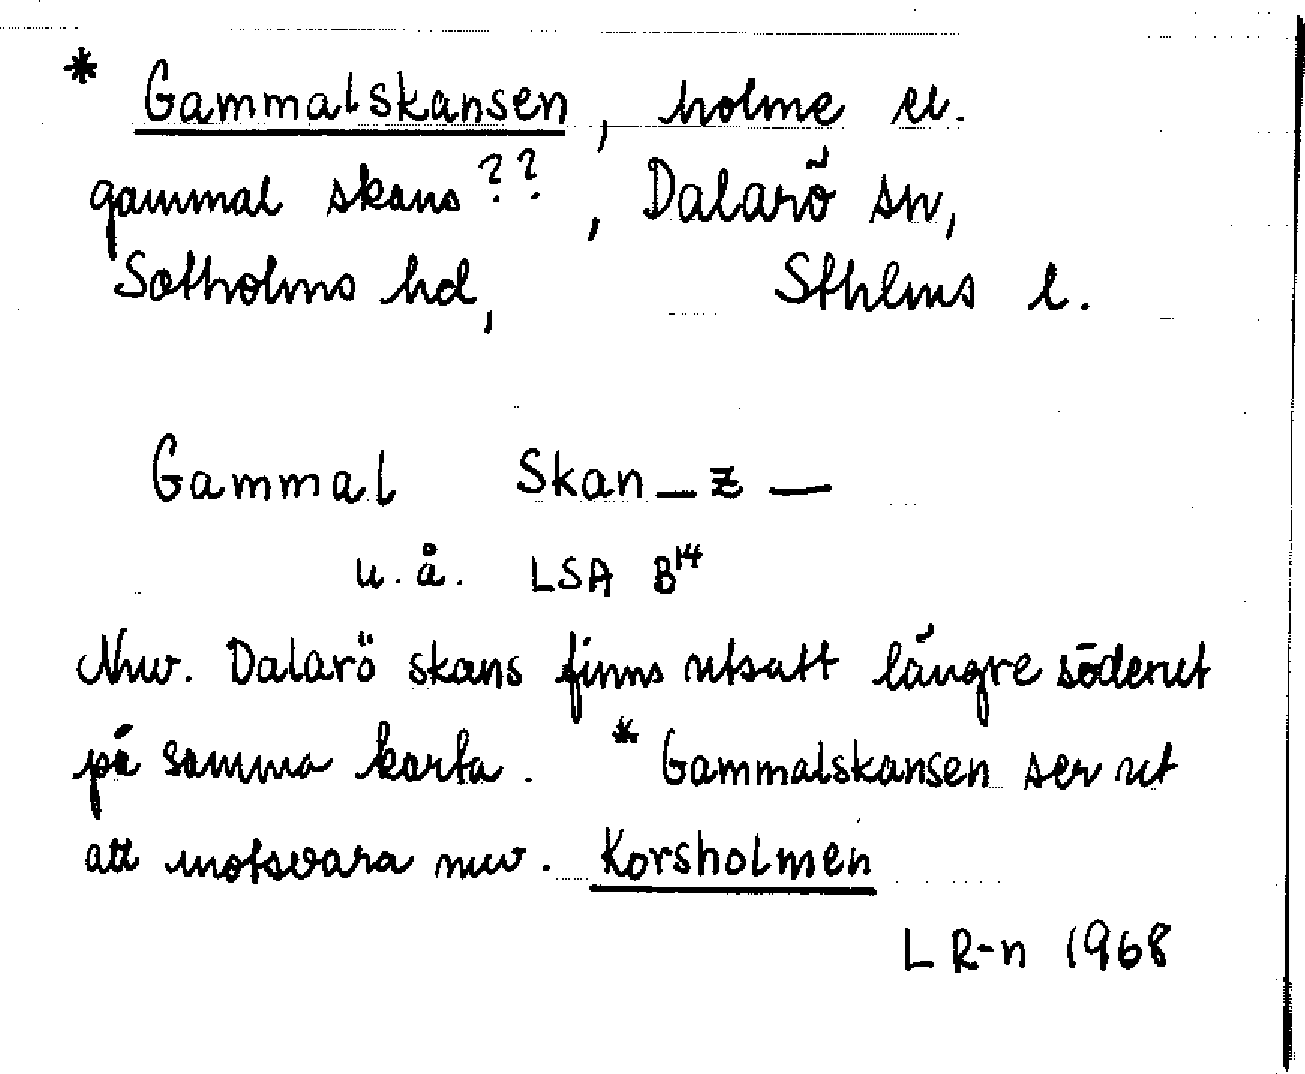 * Gammalskansen, holme el.
gammal skans??, Dalarö sn,
Sotholms hd, Sthlms l.
Gammal Skan–z–
u.å. LSA B14
Nuv. Dalarö skans finns utsatt längre söderut
på samma karta. *Gammalskansen ser ut
att motsvara nuv. Korsholmen
L R-n 1968